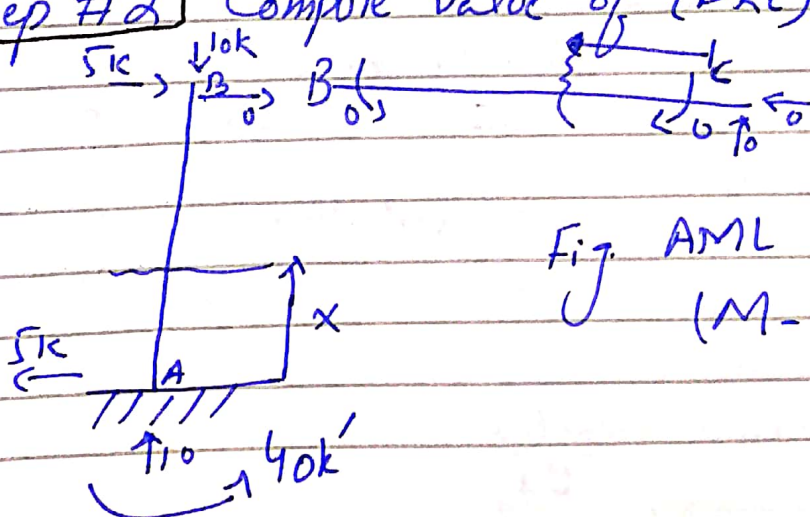 ep #2 Compute value of (
5K ↓10k
B 0 B 0 C
0 ↑0 ←0
Fig. AML
(M-
X
5K
A
↑10 40k'